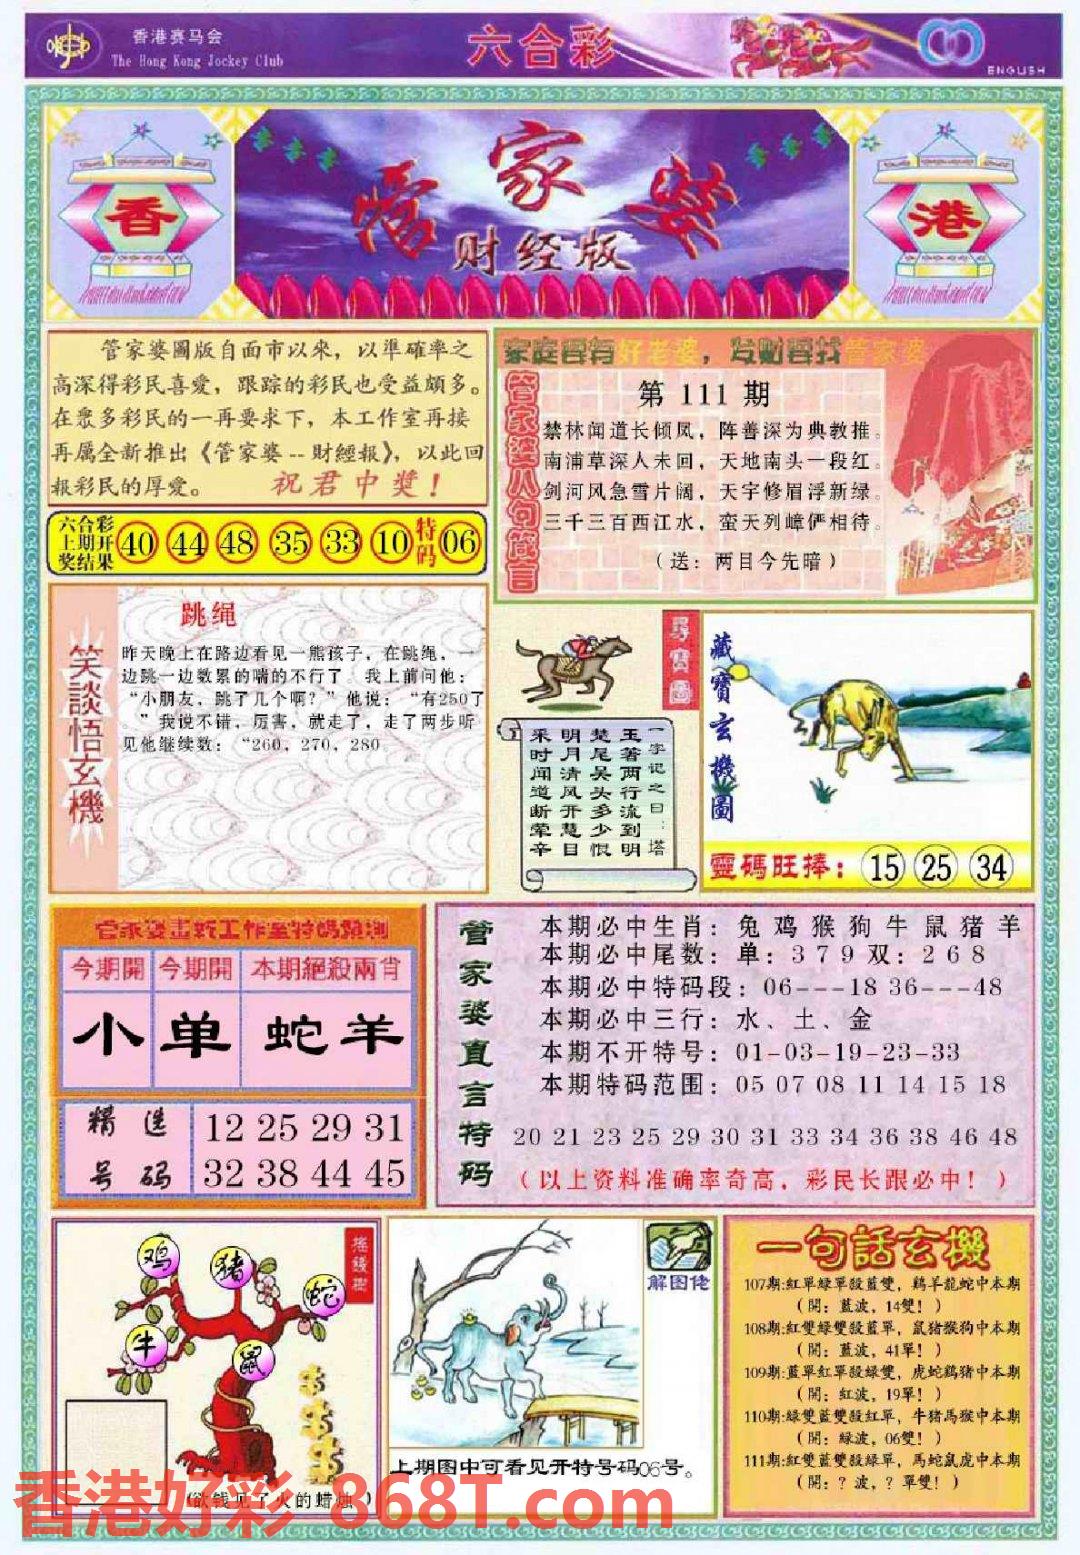 香港赛马会
The Hong Kong Jockey Club
六合彩
ENGLISH
香
管家婆
财经版
港
管家婆圖版自面市以來，以準確率之
高深得彩民喜愛，跟踪的彩民也受益頗多。
在眾多彩民的一再要求下，本工作室再接
再屬全新推出《管家婆--財經報》，以此回
報彩民的厚愛。 祝君中獎！
六合彩
上期开
奖结果
40 44 48 35 33 10 特码 06
家庭要有好老婆，发财要找管家婆
管家婆八句箴言
第 111 期
禁林闻道长倾凤，阵善深为典教推。
南浦草深人未回，天地南头一段红。
剑河风急雪片阔，天宇修眉浮新绿。
三千三百西江水，蛮天列嶂俨相待。
（送：两目今先暗）
笑談悟玄機
跳绳
昨天晚上在路边看见一熊孩子，在跳绳，一
边跳一边数累的喘的不行了，我上前问他：
“小朋友，跳了几个啊？”他说：“有250了
。”我说不错，厉害，就走了，走了两步听
见他继续数：“260，270，280
尋寶圖
一字记之曰：塔
玉著两行流到明
楚尾吴头多少恨
明月清风开慧目
采时闻道断荤辛
藏寶玄機圖
靈碼旺捧：15 25 34
管家婆畫新工作室特碼預測
今期開 今期開 本期絕殺兩肖
小 单 蛇羊
精选
号码
12 25 29 31
32 38 44 45
管家婆直言特码
本期必中生肖：兔鸡猴狗牛鼠猪羊
本期必中尾数：单：379双：268
本期必中特码段：06---18 36---48
本期必中三行：水、土、金
本期不开特号：01-03-19-23-33
本期特码范围：05 07 08 11 14 15 18
20 21 23 25 29 30 31 33 34 36 38 46 48
（以上资料准确率奇高，彩民长跟必中！）
搖錢樹
鸡
猪
蛇
牛
鼠
(欲钱见了火的蜡烛)
解图佬
上期图中可看见开特号码06号。
一句話玄機
107期:紅單綠單殺藍雙，鷄羊龍蛇中本期
（開：藍波，14雙！）
108期:紅雙綠雙殺藍單，鼠猪猴狗中本期
（開：藍波，41單！）
109期:藍單紅單殺綠雙，虎蛇鷄猪中本期
（開：紅波，19單！）
110期:綠雙藍雙殺紅單，牛猪馬猴中本期
（開：綠波，06雙！）
111期:紅雙藍雙殺綠單，馬蛇鼠虎中本期
（開：？波，？單雙！）
香港好彩 868T.com